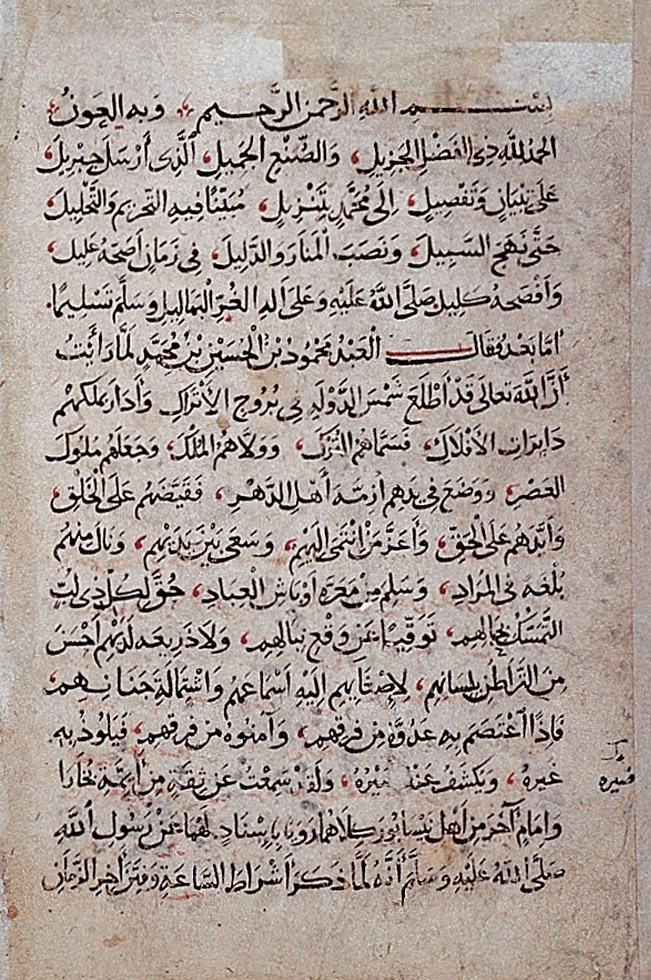 بسم الله الرحمن الرحيم وبه العون
الحمد لله ذي الفضل الجزيل، والصنع الجميل، الذي أرسل جبريل،
على تبيان وتفصيل، إلى محمد بتنزيل، مبينًا فيه التحريم والتحليل،
حتى نهج السبيل، ونصب المنار والدليل، في زمان أصحه عليل،
وأفصحه كليل صلى الله عليه وعلى آله الغر البهاليل وسلم تسليما.
أما بعد فقال العبد محمود بن الحسين بن محمد لما رأيت
أن الله تعالى قد أطلع شمس الدولة في بروج الأتراك وأدار بملكهم
دايرات الأفلاك، فسماهم الترك، وولاهم الملك، وجعلهم ملوك
العصر، ووضع في يدهم أزمة أهل الدهر، فقيضهم على الخلق،
وأيدهم على الحق، وأعز من انتمى إليهم، وسعى بين يديهم، ونال منهم
بلغة في المراد، وسلم من معرة أوباش العباد، حق لكل ذي لب
التمسك بحبالهم، توقيا عن وقع نبالهم، ولا ذريعة لديهم أحسن
من التراطن بلسانهم، لإصغائهم إليه أسماعهم واستمالة جنانهم،
فإذا اعتصم به عدوة من فرقهم، وآمنوه من فرقهم، فيلوذ به
غيره، ويكشف عنده ضيره، ولقد سمعت عن ثقة من أيمة بخارا
وإمام آخر من أهل نيسابور كلاهما رويا بإسناد لهما عن رسول الله
صلى الله عليه وسلم أنه لما ذكر أشراط الساعة وفتن آخر الزمان
ضيره